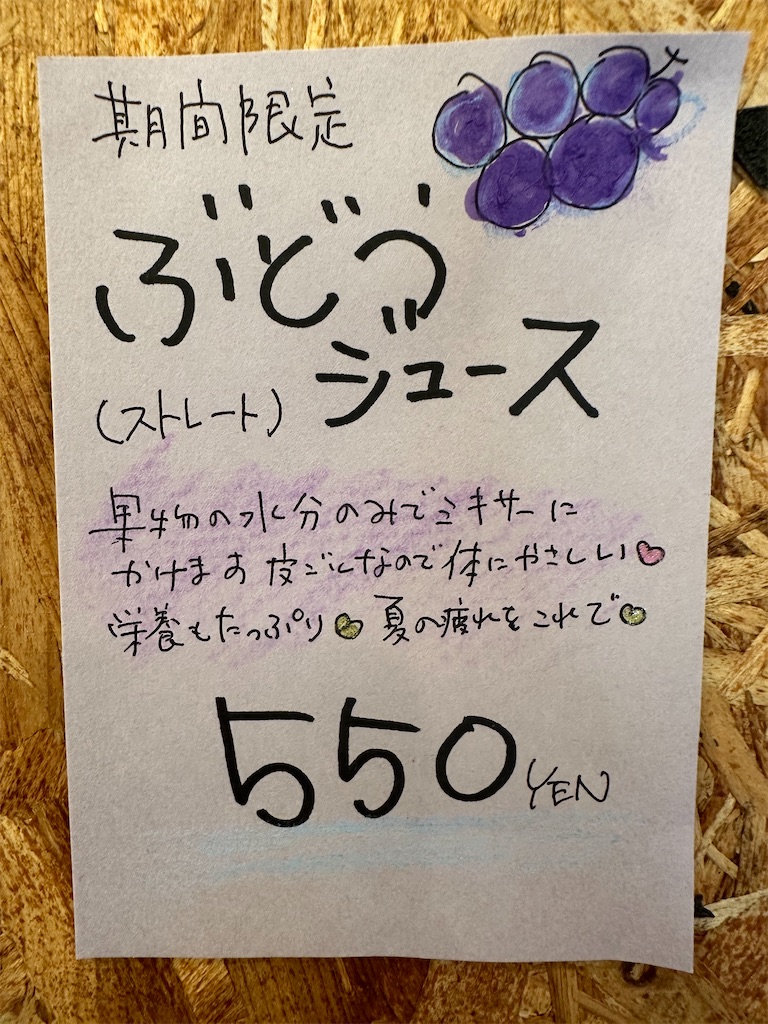 期間限定
ぶどう
ジュース
(ストレート)
果物の水分のみでミキサーに
かけます 皮ごとなので体にやさしい
栄養もたっぷり 夏の疲れをこれで
550YEN